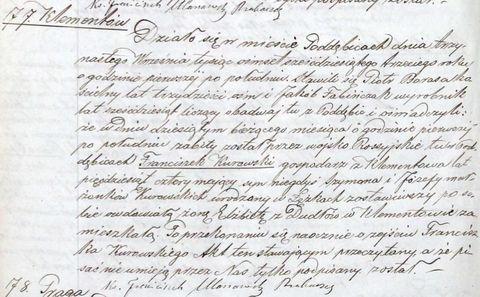 Ks. Franciszek
77. Klementów
Działo się w mieście Poddębicach dnia trzy-
nastego Września tysiąc ośmset sześćdziesiątego trzeciego roku,
o godzinie pierwszej po południu. Stawili się Piotr Barasaka
ścielny lat trzydzieści ośm i Jakób Falińczak wyrobnik
lat sześćdziesiąt liczący obadwaj tu z Poddębic i oświadczyli:
że w dniu dziesiątym bieżącego miesiąca o godzinie pierwszej
po południu zabity został przez wojsko Rossyjskie tu w Pod-
dębicach Franciszek Kurowski gospodarz z Klementowa lat
pięćdziesiąt cztery mający, syn niegdyś Szymona i Józefy mał-
żonków Kurowskich urodzony w Łężkach zostawiwszy po so-
bie owdowiałą żonę Elżbietę z Dudków w Klementowie za-
mieszkałą. Po przekonaniu się naocznie o zejściu Francisz-
ka Kurowskiego Akt ten stawającym przeczytany a że pi-
sać nie umieją przez Nas tylko podpisany został.
Ks.
78. Praga